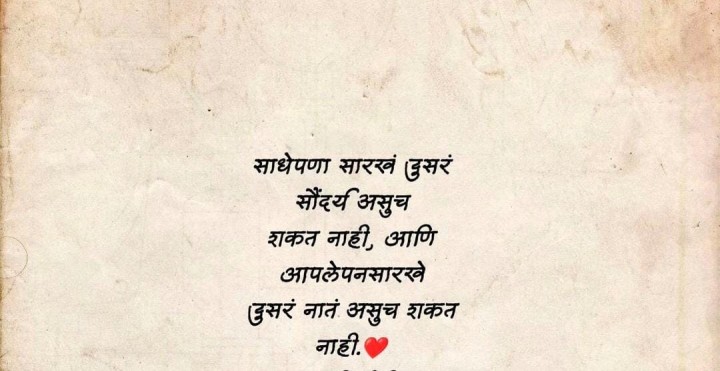 साधेपणा सारखं दुसरं
सौंदर्य असुच
शकत नाही, आणि
आपलेपनसारखे
दुसरं नातं असुच शकत
नाही.❤️